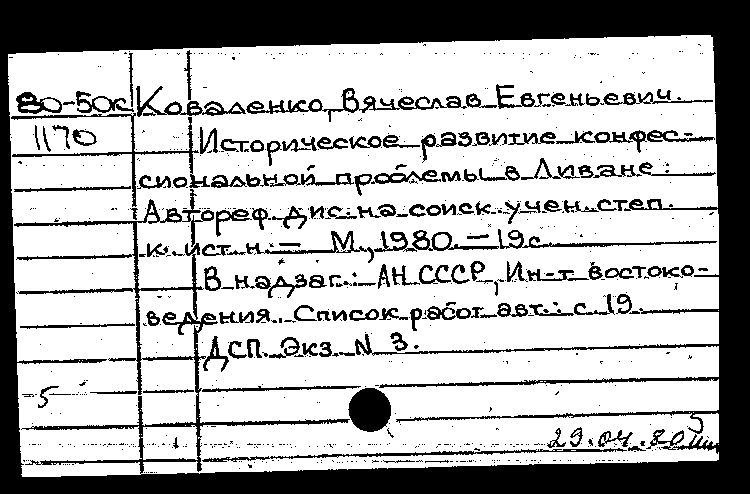 80-50к Коваленко, Вячеслав Евгеньевич.
1170 Историческое развитие конфес-
сиональной проблемы в Ливане:
Автореф. дис. на соиск. учен. степ.
к. ист. н. — М., 1980. — 19с.
В надзаг.: АН СССР, Ин-т востоко-
ведения. Список работ авт.: с. 19.
ДСП. Экз. N 3.
5
29.04.80